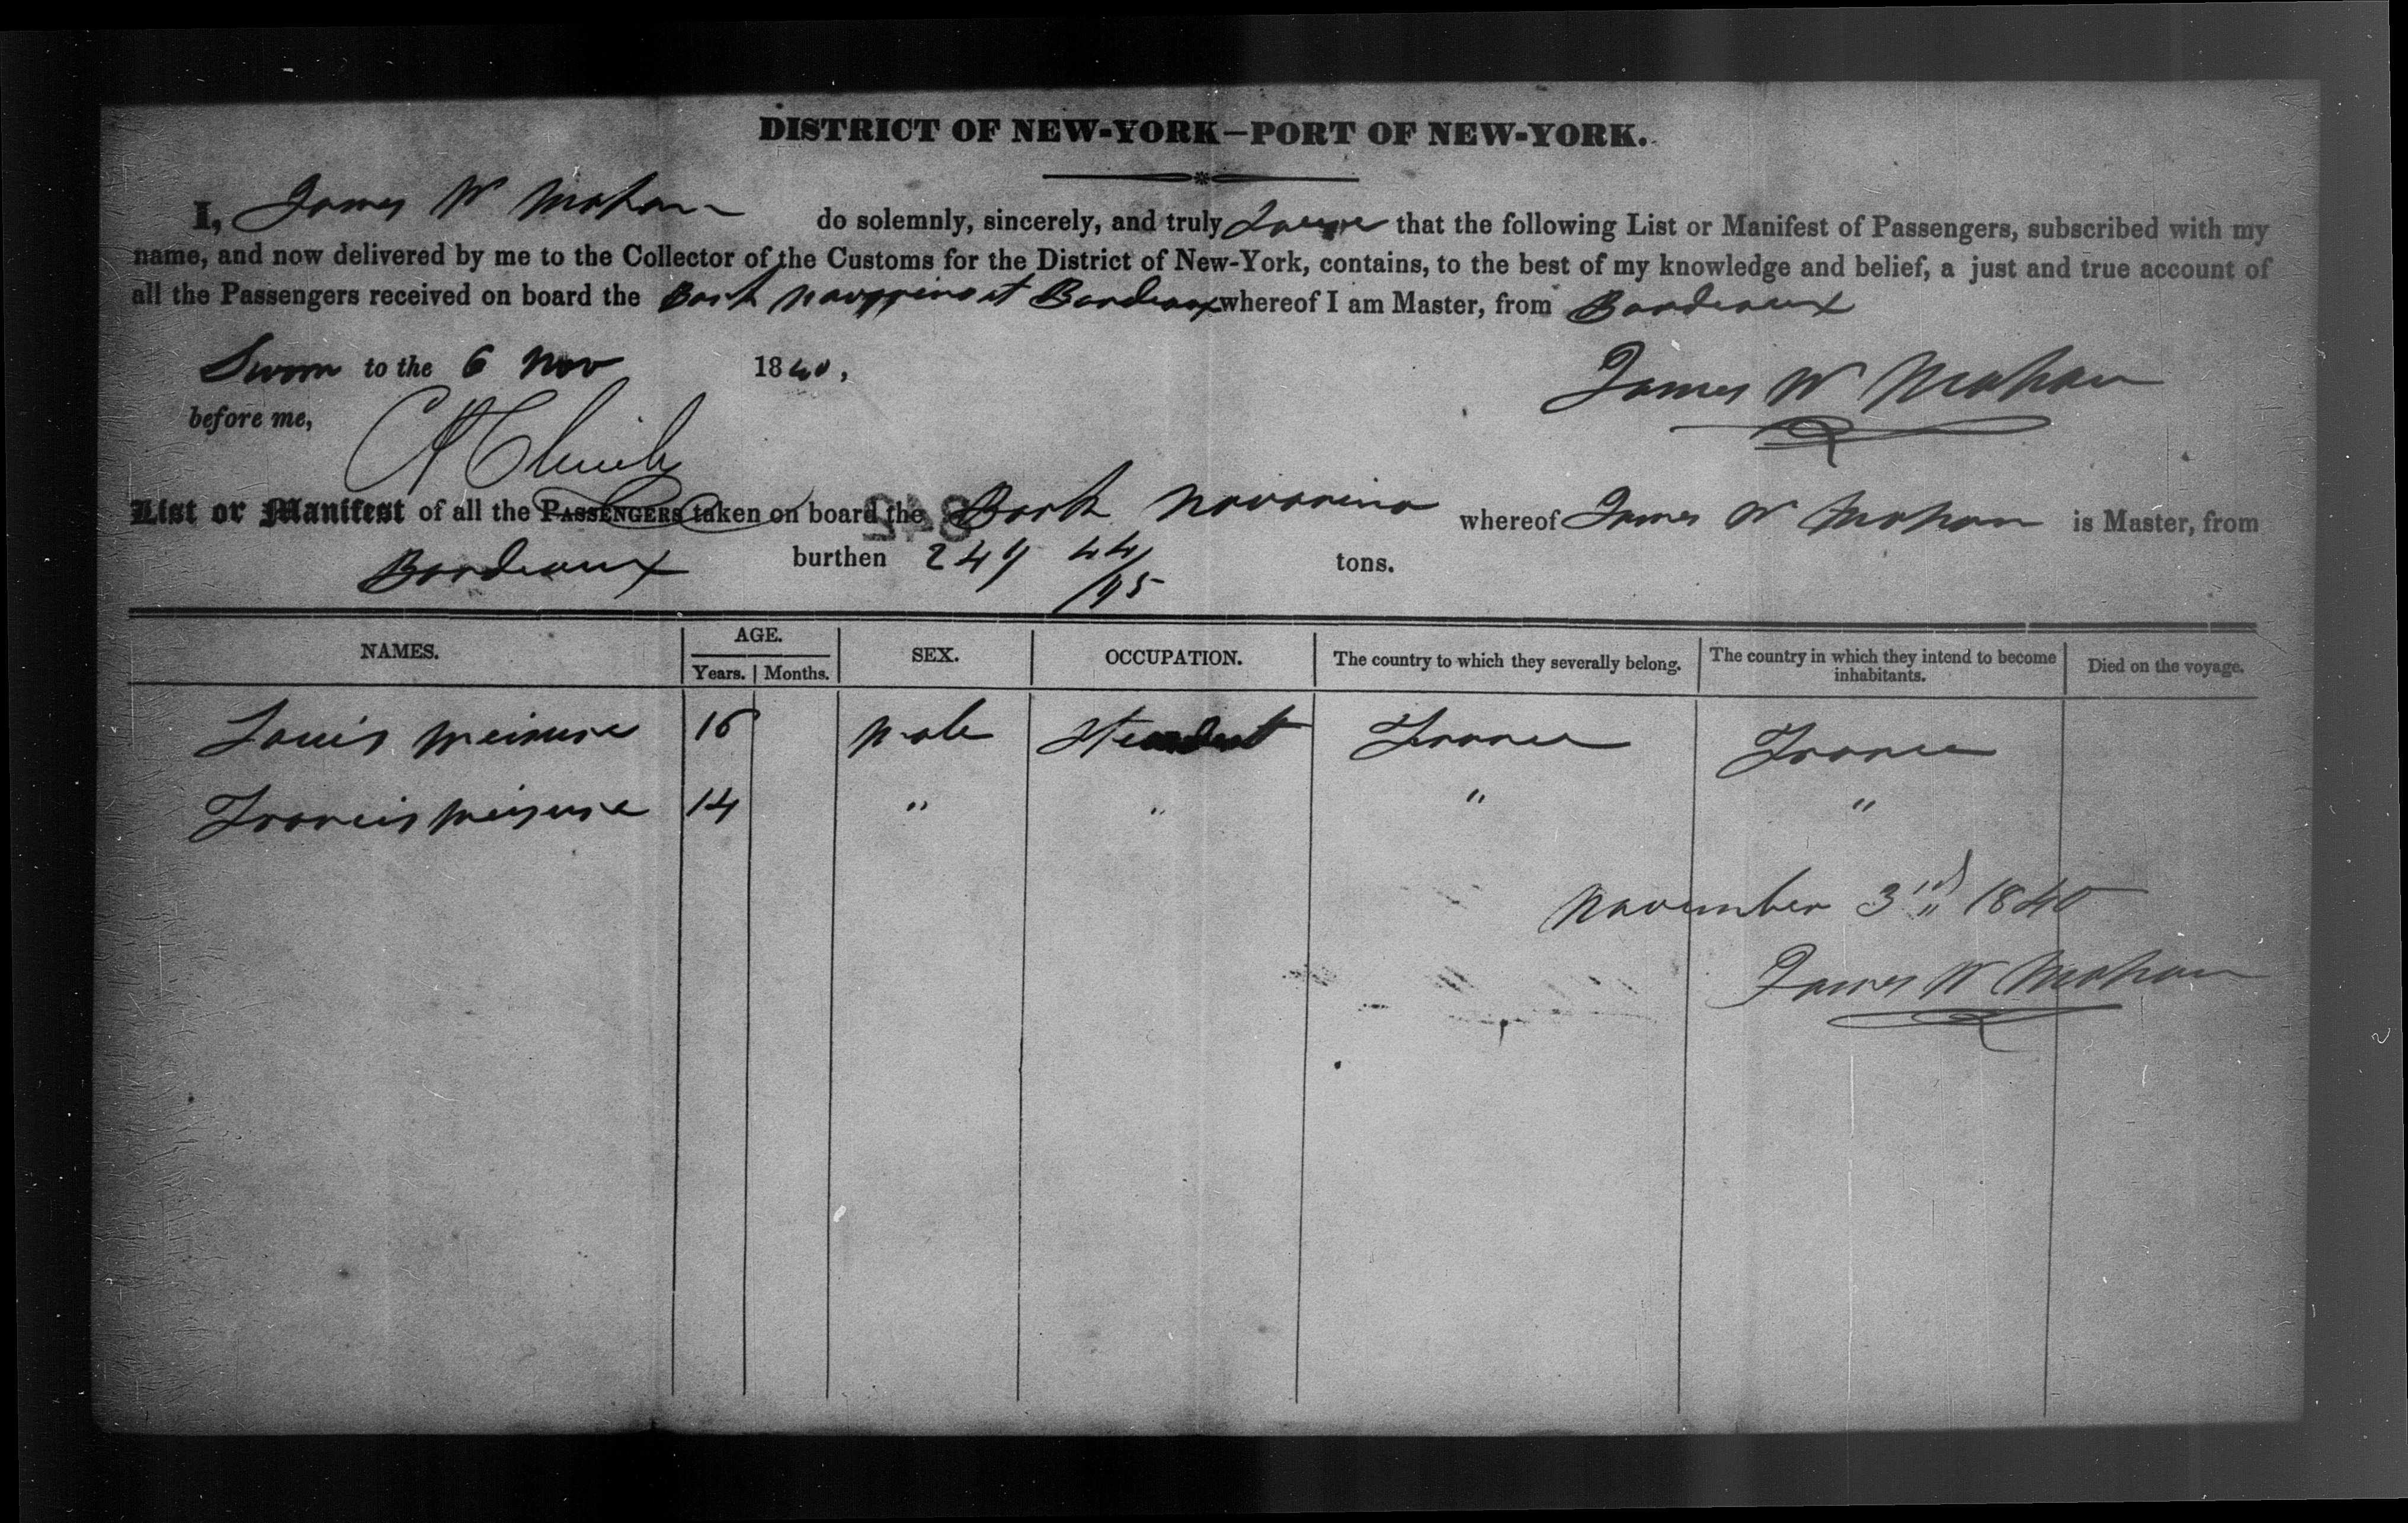 DISTRICT OF NEW-YORK—PORT OF NEW-YORK.
I, James W Mahan do solemnly, sincerely, and truly that the following List or Manifest of Passengers, subscribed with my
name, and now delivered by me to the Collector of the Customs for the District of New-York, contains, to the best of my knowledge and belief, a just and true account of
all the Passengers received on board the Bark at Bordeaux whereof I am Master, from Bordeaux
Sworn to the 6 Nov 1840,
James W Mahan
before me,
List or Manifest of all the PASSENGERS taken on board the Bark Navarino whereof James W Mahan is Master, from
Bordeaux burthen 247 44/95 tons.
NAMES. AGE. Years. Months. SEX. OCCUPATION. The country to which they severally belong. The country in which they intend to become inhabitants. Died on the voyage.
Louis 16 Male France France
Francis 14 " " " "
November 3rd 1840
James W Mahan